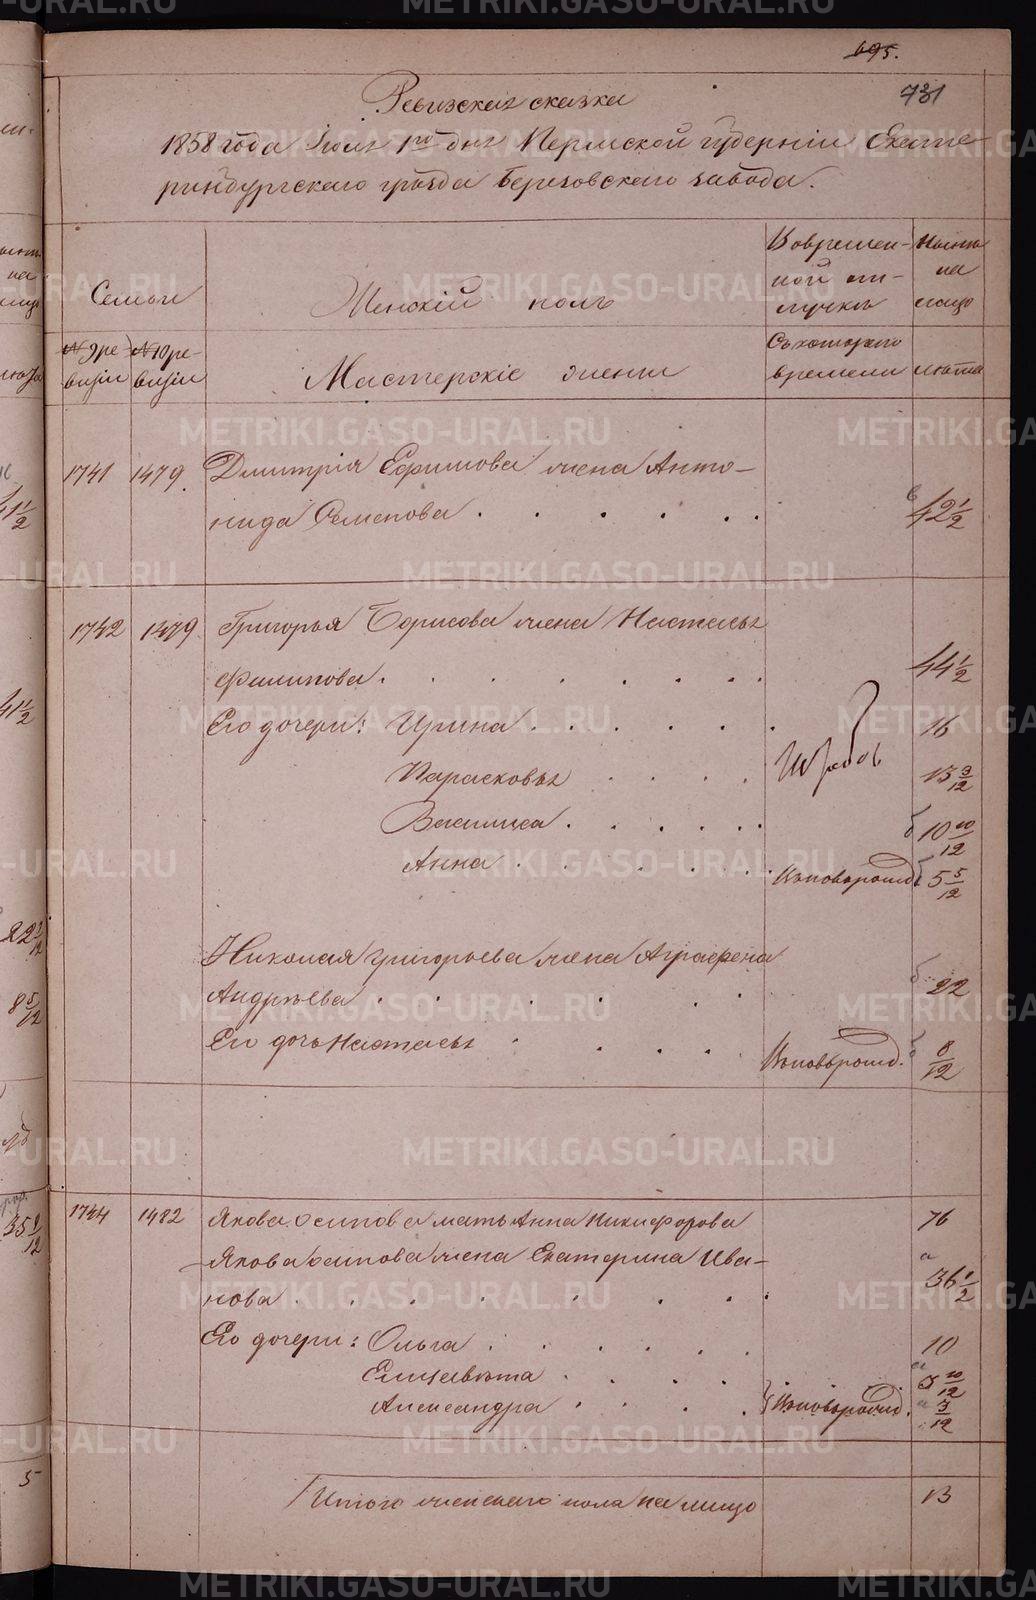 695.
731
Ревизская сказка
1858 года Июля 1го дня Пермской губернии Екате-
ринбургского уезда Березовского завода.
Семьи
Женскій полъ
Во времен-
ной от-
лучкѣ
Налицо
№ 9 ре-
визіи
№ 10 ре-
визіи
Мастерскіе жены
Съ котораго
времени
лѣта
1741 1479. Дмитрія Ефимова жена Анто-
нида Семенова . . . . . . 42 1/2
1742 1479 Григорья Борисова жена Наталья
Филипова . . . . . . 44 1/2
Его дочери: Ирина . . . . . 16
Парасковья . . . . 13 3/12
Василиса . . . . . б 10 10/12
Анна . . . . . . Вновьрожд. 5 5/12
Николая Григорьева жена Аграфена
Андрѣева . . . . . . б 22
Его дочь Наталья . . . . Вновьрожд. б 8/12
1744 1482 Якова Осипова мать Анна Никифорова 76
Якова Осипова жена Екатерина Ива-
нова . . . . . . . а 36 1/2
Его дочери: Ольга . . . . . 10
Елисавета . . . . а 3 10/12
Александра . . . . Вновьрожд. а 3/12
Итого женскаго пола на лицо 13
METRIKI.GASO-URAL.RU